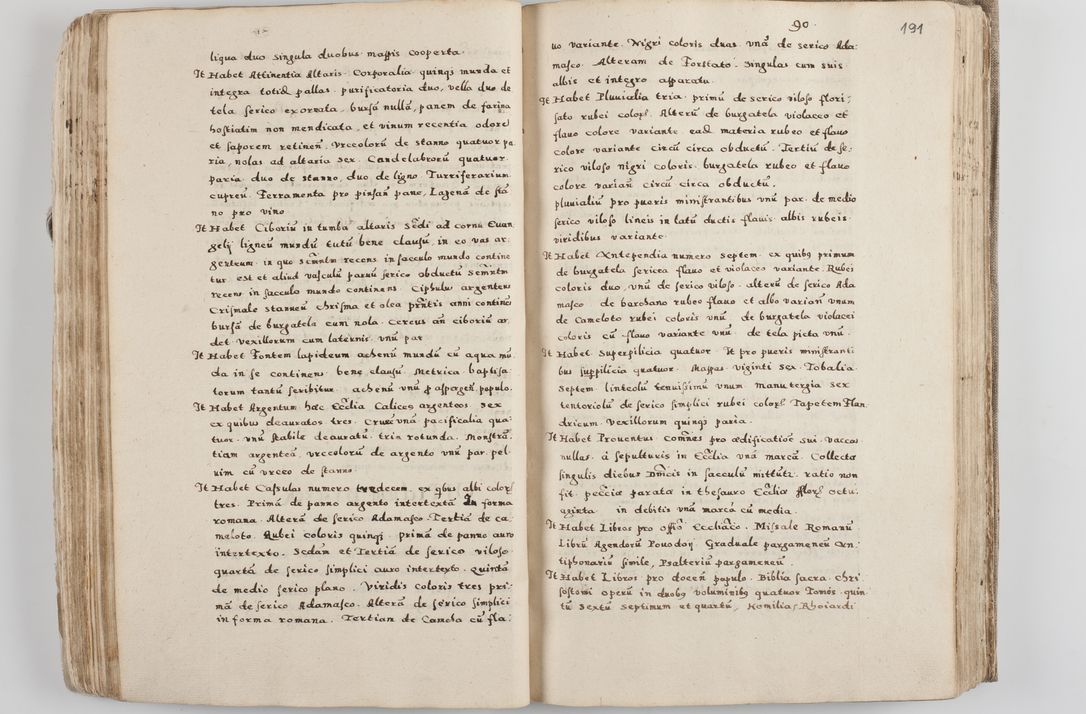 liqua duo singula duobus mappis cooperta
It Habet Attinentia Altaris. Corporalia quinqȝ munda et
integra totid. pallas. purificatoria duo, vella duo de
tela serico exoreata, bursā nullā, panem de farina
hostiatim non mendicata, et vinum recentia odorē
et saporem retineñ. Vrceolorū de stanno quatuor pa
ria, nolas ad altaria sex. Candelabrorū quatuor
paria duo de stanno, duo, de ligno. Turriferarium
cupreū. Ferramenta pro pinsañ pane, Lagenā de stā
no pro vino
It Habet Ciboriū in tumba altaris Sedi ad cornu Euan
gelij ligneū mundū tutū bene clausū, in eo vas ar
genteum. in quo Scm̃ntm recens in sacculo mundo contine
tur. est et aliud vasculū parvū serico obductū Scm̃ntm
recens in sacculo mundo continens. Ciphulū argenteū
Crismale stanneū chrisma et olea pr̃ntis anni continēs
bursā de burgatela cum nola. Cereus añ ciboriū ar
det vexillorum cum laternis. vnū par
It Habet Fontem lapideum achenū mundū cū aqua mū
da in se continens bene clausū. Metrica baptisa
torum tantū scribitur. achenū vnū ꝓ aspergeñ. populo.
It Habet Argentum hæc Ecclia Calices argenteos sex
ex quibus deauratos tres. Crucē vnā pacificalia qua
tuor. vnū stabile deauratū. tria rotunda. Monstrā
tiam argenteā. vrceolorū de argento vnū par pel
uim cū vrceo de stanno.
It Habet Casulas numero tredecem. ex qbus albi colorȝ
tres. Primā de panno argento intertextā In forma
romana. Alterā de serico Adamasco. Tertiā de ca
meloto. Rubei coloris quinqȝ. primā de panno auro
intertexto. Scdam et Tertiā de serico viloso
quartā de serico simplici auro intertexto. Quintā
de medio serico plano. Viridis coloris tres pri
mā de serico Adamasco. Alterā de serico simplici
in forma romana. Tertiam de Camcha cū fla:
90.
191
uo variante. Nigri coloris duas. vnā de serico Ada:
masco. Alteram de Forstato. Singulas cum suis
albis et integro apparatu.
It Habet Pluuialia tria. primū de serico viloso flori:
sato rubei colorȝ. Alterū de burgatela violaceo et
flauo colore variante. ead. materia rubeo et flauo
colore variante circū circa obductū. Tertiū de se:
rico viloso nigri coloris. burgatela rubeo et flauo
colore variañ circū circa obductū.
pluuialiū pro pueris ministrantibus vnū par. de medio
serico viloso lineis in latū ductis flauis. albis rubeis.
viridibus variante.
It Habet Antependia numero septem. ex quibȝ primum
de burgatela sericea flauo et violaceo variante. Rubei
coloris duo, vnū de serico viloso. alterū de serico Ada
masco de barchano rubeo flauo et albo varioñ vnum
de Cameloto rubei coloris vnū. de burgatela violacei
coloris cū flauo variante vnū de tela picta vnū.
It Habet Superpilicia quatuor. It pro pueris ministranti
bus suppilicia quatuor. Mappas viginti sex. Tobalia
Septem. linteolū tenuissimū vnum. manutergia sex
tentoriolū de serico simplici rubei colorȝ. Tapetem Flan
dricum. vexillorum quinqȝ paria.
It Habet Prouentus com̃nes pro ædificatioē sui. vaccas
nullas. à sepulturis in Ecclia vnā marcā. Collecta
singulis diebus Dñicis in sacculū mittūtr. ratio non
fit. pecc̄ia parata in thesauro Eccliæ florȝ octu:
aginta. in debitis vnā marcā cū media.
It Habet Libros pro offō Ecclīaco. Missale Romanū
Librū Agendorū Pouodoȝ. Graduale pargameneū An:
tiphonariū simile, Psalteriū pargameneū.
It Habet Libros pro doceñ populo. Biblia sacra. Chri
sostomi operū in duobȝ voluminibȝ quatuor Tomos. quin
tū Sextū Septimum et quartū, Homilias Rhoiardi